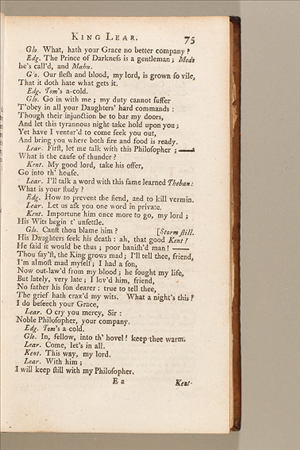 KING LEAR. 75
Glo. What, hath your Grace no better company?
Edg. The Prince of Darkness is a gentleman; Modo
he's call'd, and Mahu.
G'o. Our flesh and blood, my lord, is grown so vile,
That it doth hate what gets it.
Edg. Tom's a-cold.
Glo. Go in with me; my duty cannot suffer
T'obey in all your Daughters' hard commands:
Though their injunction be to bar my doors,
And let this tyrannous night take hold upon you;
Yet have I ventur'd to come seek you out,
And bring you where both fire and food is ready.
Lear. First, let me talk with this Philosopher; ——
What is the cause of thunder?
Kent. My good lord, take his offer,
Go into th' house.
Lear. I'll talk a word with this same learned Theban:
What is your study?
Edg. How to prevent the fiend, and to kill vermin.
Lear. Let us ask you one word in private.
Kent. Importune him once more to go, my lord;
His Wits begin t' unsettle.
Glo. Canst thou blame him? [Storm still.
His Daughters seek his death: ah, that good Kent!
He said it would be thus; poor banish'd man! ——
Thou say'st, the King grows mad; I'll tell thee, friend,
I'm almost mad myself; I had a son,
Now out-law'd from my blood; he sought my life,
But lately, very late; I lov'd him, friend,
No father his son dearer: true to tell thee,
The grief hath craz'd my wits. What a night's this?
I do beseech your Grace,
Lear. O cry you mercy, Sir:
Noble Philosopher, your company.
Edg. Tom's a cold.
Glo. In, fellow, into th' hovel! keep thee warm.
Lear. Come, let's in all.
Kent. This way, my lord.
Lear. With him;
I will keep still with my Philosopher.
E 2 Kent.